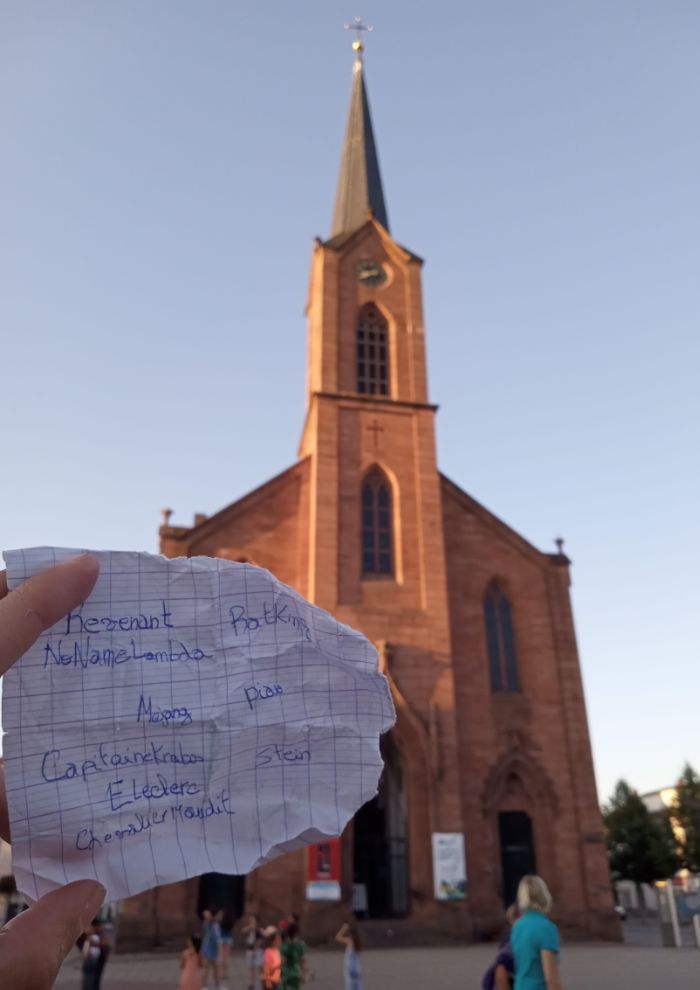 Revenant RatKing
NoNameLambda
piou
Capitainekrabs stein
E Leclerc
ChevalierMaudit